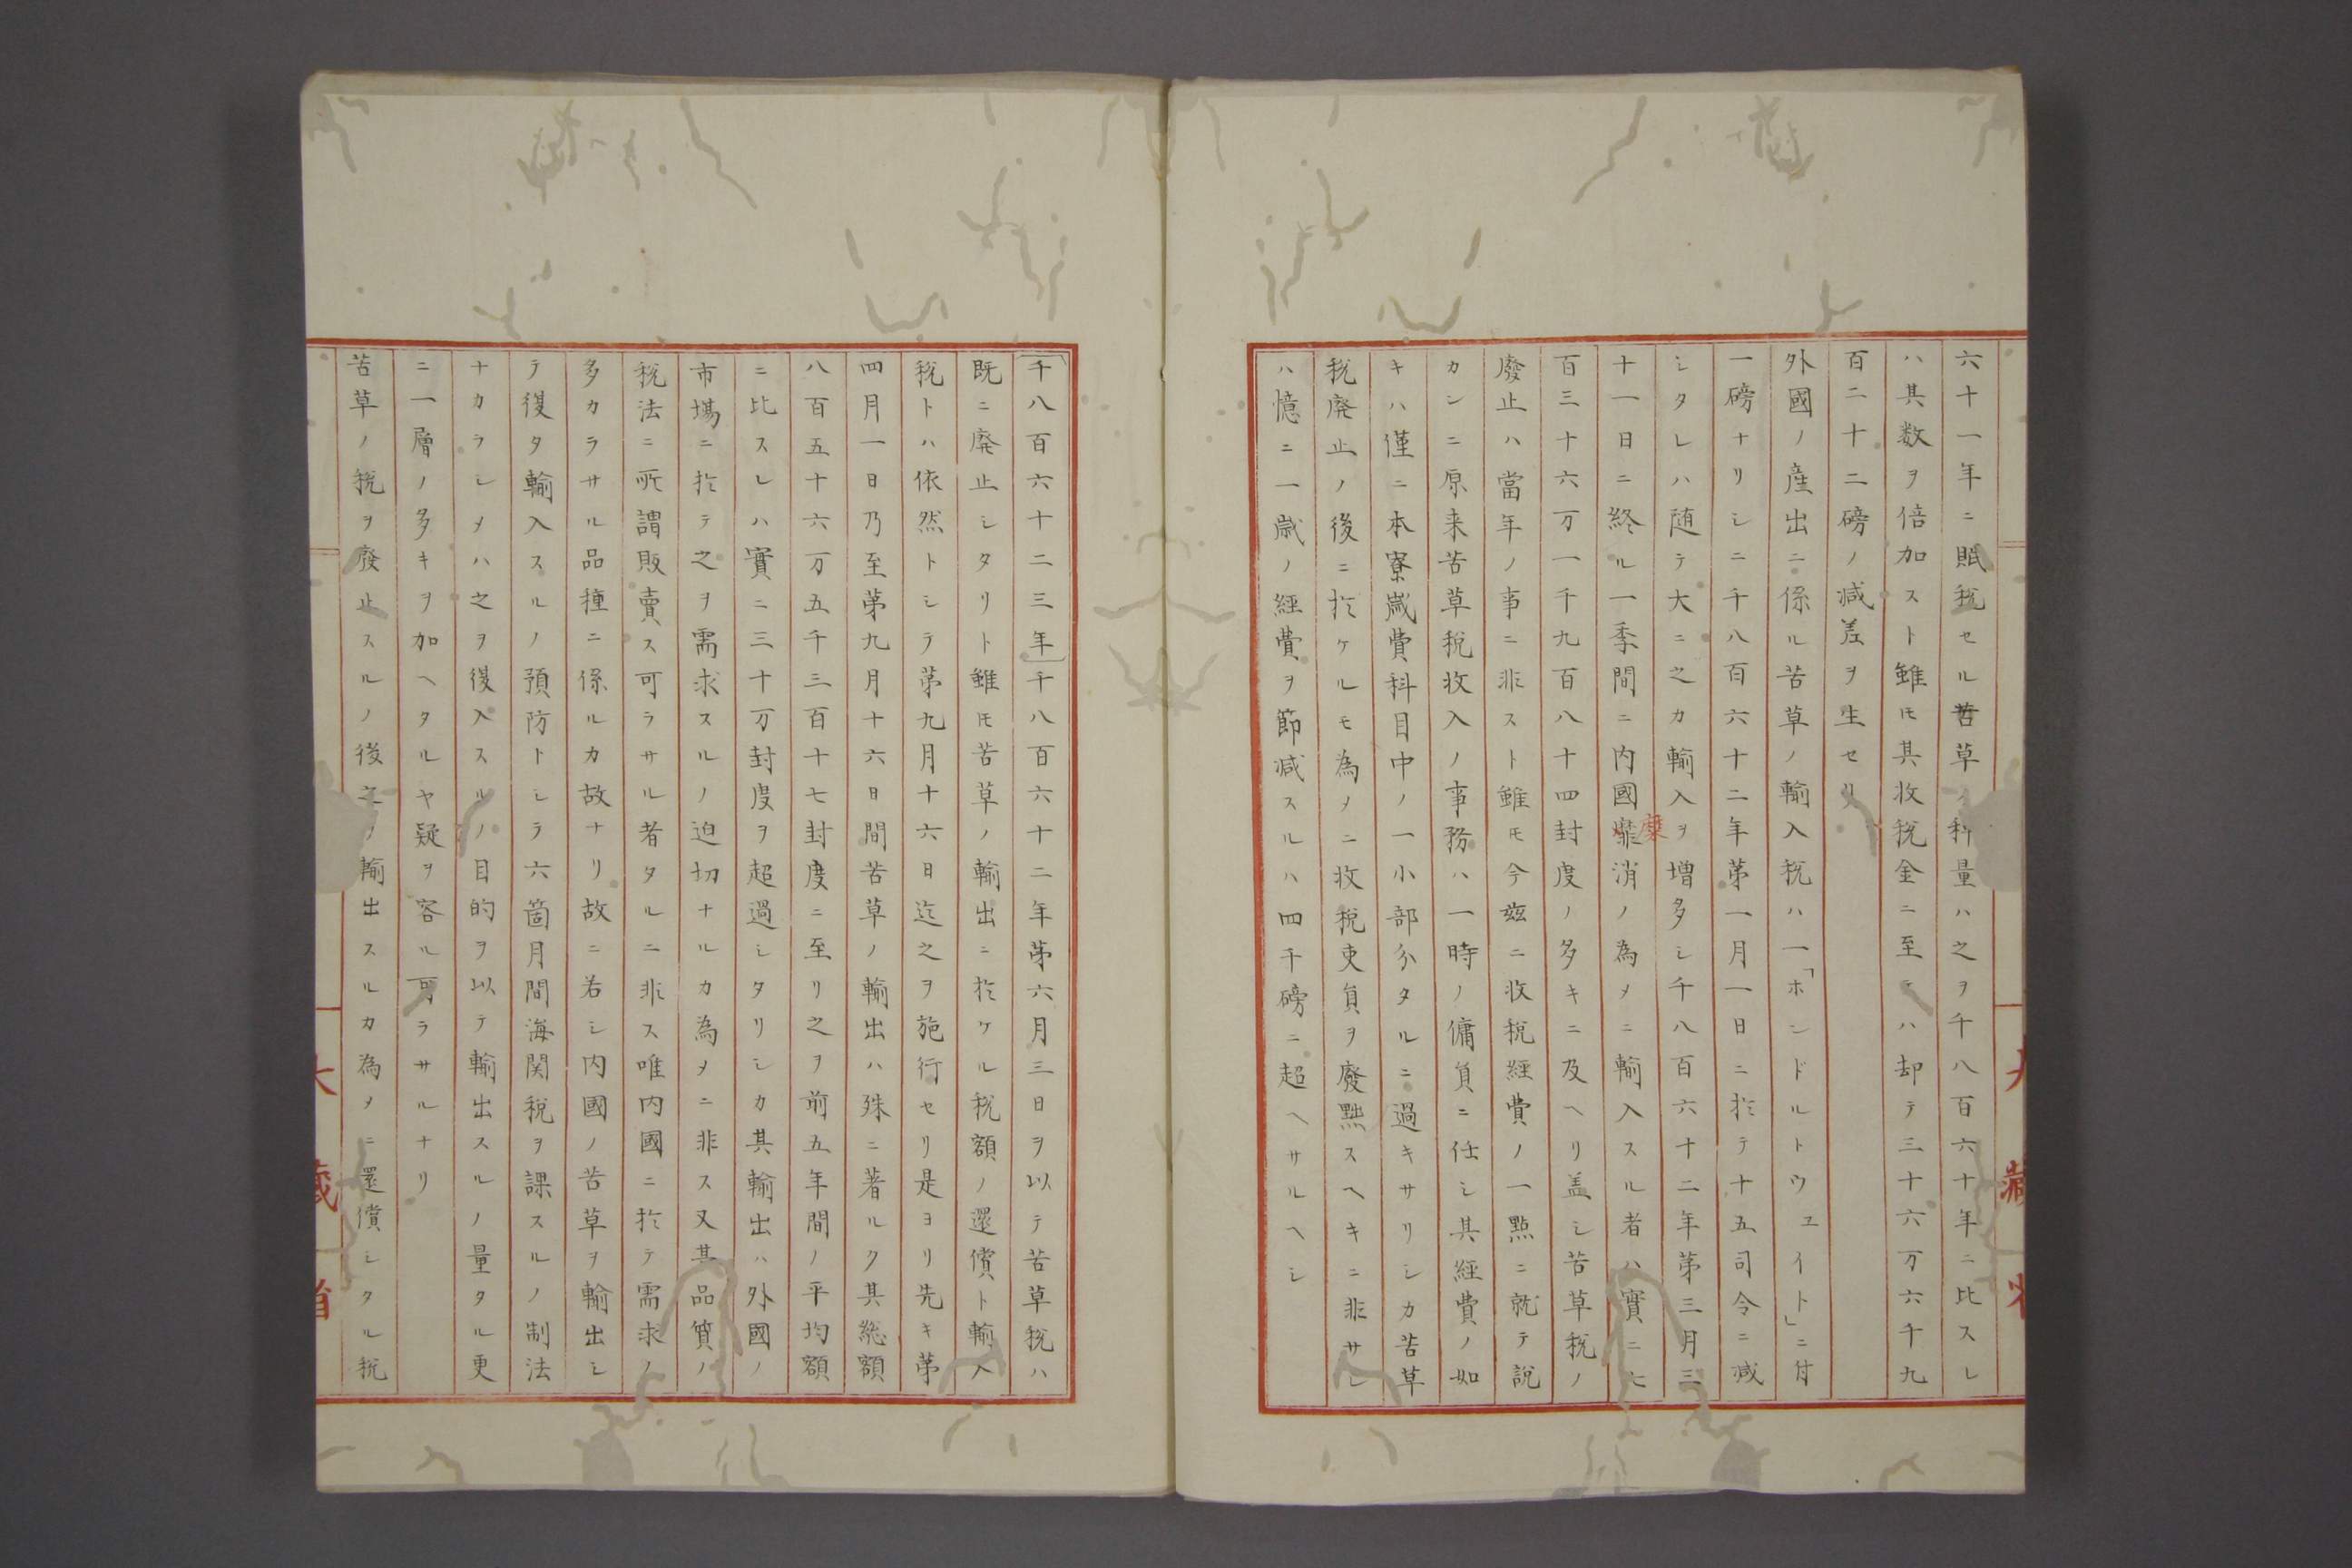 六十一年ニ賦税セル苦草ノ秤量ハ之ヲ千八百六十年ニ比スレ
ハ其数ヲ倍加スト雖𪜈其收税金ニ至テハ却テ三十六万六千九
百二十二磅ノ減差ヲ生セリ
外國ノ産出ニ係ル苦草ノ輸入税ハ一「ホンドルトウエイト」ニ付
一磅ナリシニ千八百六十二年第一月一日ニ於テ十五司令ニ減
シタレハ随テ大ニ之カ輸入ヲ増多シ千八百六十二年第三月三
十一日ニ終ル一季間ニ内國靡消ノ為メニ輸入スル者ハ實ニ七
糜
百三十六万一千九百八十四封度ノ多キニ及ヘリ盖シ苦草税ノ
廢止ハ當年ノ事ニ非スト雖𪜈今兹ニ收税經費ノ一點ニ就テ説
カンニ原来苦草税收入ノ事務ハ一時ノ傭員ニ任シ其經費ノ如
キハ僅ニ本寮歳費科目中ノ一小部分タルニ過キサリシカ苦草
税廃止ノ後ニ於ケルモ為メニ收税吏員ヲ廢黙スヘキニ非サレ
ハ憶ニ一歳ノ經費ヲ節減スルハ四千磅ニ超ヘサルヘシ
大藏省
「千八百六十二三年」千八百六十二年第六月三日ヲ以テ苦草税ハ
既ニ廃止シタリト雖𪜈苦草ノ輸出ニ於ケル税額ノ還償ト輸入
税トハ依然トシテ第九月十六日迄之ヲ施行セリ是ヨリ先キ第
四月一日乃至第九月十六日間苦草ノ輸出ハ殊ニ著ルク其総額
八百五十六万五千三百十七封度ニ至リ之ヲ前五年間ノ平均額
ニ比スレハ實ニ三十万封度ヲ超過シタリシカ其輸出ハ外國ノ
市場ニ於テ之ヲ需求スルノ迫切ナルカ為メニ非ス又其品質ノ
税法ニ所謂販賣ス可ラサル者タルニ非ス唯内國ニ於テ需求ノ
多カラサル品種ニ係ルカ故ナリ故ニ若シ内國ノ苦草ヲ輸出シ
テ復タ輸入スルノ預防トシテ六箇月間海関税ヲ課スルノ制法
ナカラシメハ之ヲ復入スルノ目的ヲ以テ輸出スルノ量タル更
ニ一層ノ多キヲ加ヘタルヤ疑ヲ容ル可ラサルナリ
苦草ノ税ヲ廢止スルノ後之ヲ輸出スルカ為メニ還償シタル税
大藏省